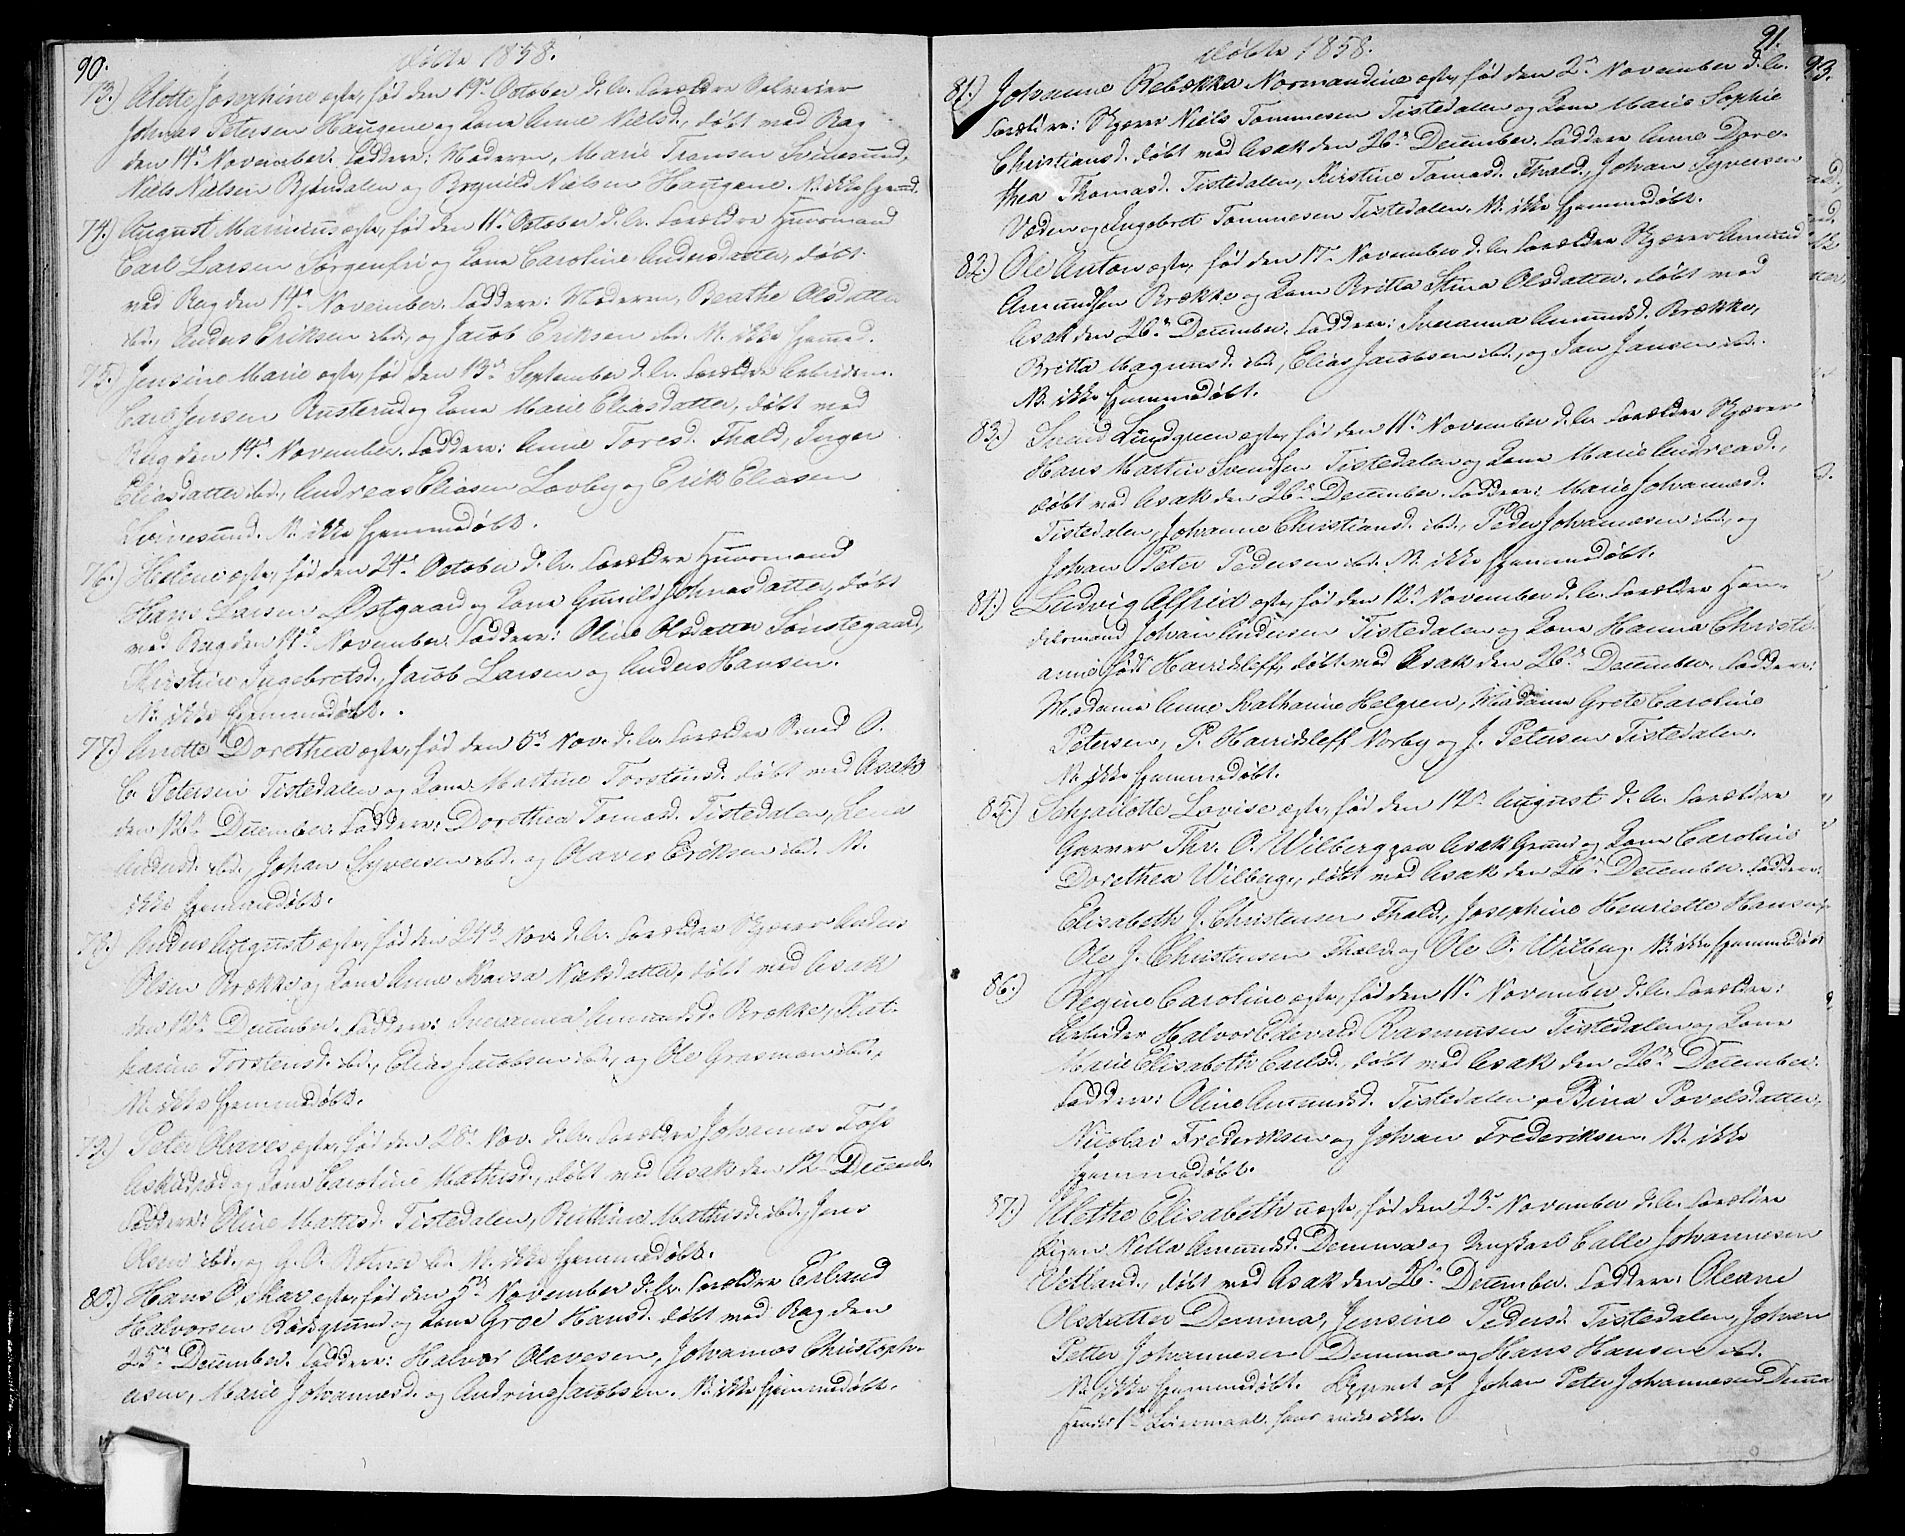 90.
Døbte 1858.
73.) Alette Josephine egte, født den 19de October d. A. Forældre Selveier
Johnas Petersen Haugene og Kone Anne Nielsd., døbt med Bag
den 14de November. Faddere: Moderen, Marie Transen Svinesund,
Niels Nielsen Bjørndalen og Brynild Nielsen Haugene. N. ikke hjemmed.
74.) August Marinius egte, født den 11te October d. A. Forældre Huusmand
Carl Larsen Sørgenfri og Kone Caroline Andersdatter, døbt
med Bag den 14de November. Faddere: Moderen, Beathe Olsdatter
ibd., Anders Eriksen ibd., og Jacob Eriksen ibd. N. ikke hjemmed.
75.) Jensine Marie egte, født den 13de September d. A. Forældre Arbeidsm.
Carl Jensen Rusterud og Kone Marie Eliasdatter, døbt med
Bag den 14de November. Faddere: Anne Toresd. Fhald, Inger
Eliasdatter ibd., Andreas Eliasen Lovby og Erik Eliasen
Svinesund. N. ikke hjemmedøbt.
76.) Helene egte, født den 24de October d. A. Forældre Huusmand
Hans Larsen Østgaard og Kone Gunild Johnasdatter, døbt
med Bag den 14de November. Faddere: Oline Olsdatter Sønstegaard,
Kirstine Ingebretsd., Jacob Larsen og Anders Hansen.
N. ikke hjemmedøbt.
77.) Anette Dorothea egte, født den 5de Nov. d. A. Forældre O.
C. Petersen Tistedalen og Kone Martine Torstensd. døbt med Asak
den 12te December. Faddere: Dorthea Tomasd. Tistedalen, Lena
Andersd. ibd. Johan Syversen ibd. og Olaves Eriksen ibd. N.
ikke hjemmedøbt.
78.) Anders August egte, født den 24de Nov. d. A. Forældre Skjærer Anders
Olsen Brække og Kone Anne Kaisa Nielsdatter, døbt med Asak
den 12te December. Faddere: Sveranna Amundsd. Brække, Kat-
harine Torstensd. ibd., Elias Jacobsen ibd., og Ole Grasman ibd.,
N. ikke hjemmedøbt.
79.) Peter Olaves egte, født den 28de Nov. d. A. Forældre Johannes
og Kone Caroline Mathisd., døbt med Asak den 12te Decemb.
Faddere: Oline Mathisd. Tistedalen, Mathisd. ibd., Jens
Olsen ibd. og G. O. ibd. N. ikke hjemmedøbt.
80.) Hans Oskar egte, født den 5de November d. A. Forældre Erland
Halvorsen Bøksgrund og Kone Groe Hansd. døbt med Bag den
25de December. Faddere: Halvor Olavesen, Johannes Christoph-
ersen, Marie Johannesd. og Andrine Jacobsen. N. ikke hjemmedøbt.
91.
Døbte 1858.
81.) Johanne Rebækka Normandine egte, født den 2de November d. A.
Forældre: Skjærer Niels Tommesen Tistedalen og Kone Marie Sophie
Christiansd. døbt med Asak den 26de December. Faddere Anne Doro-
thea Thomasd. Tistedalen, Kirstine Tomasd. Fhald, Johan Syversen
Veden og Ingebret Tommesen Tistedalen. N. ikke hjemmedøbt.
82.) Ole Anton egte, født den 17de November d. A. Forældre Skjærer Amund
Amundsen Brække og Kone Britta Stina Olsdatter, døbt med
Asak den 26de December. Faddere: Sveranna Amundsd. Brække,
Britta Magnusd. ibd., Elias Jacobsen ibd., og Jan Jansen ibd.
N. ikke hjemmedøbt.
83.) Lindgreen egte, født den 11te November d. A. Forældre Skjærer
Hans Martin Svendsen Tistedalen og Kone Marie Andreasd.,
døbt med Asak den 26de December. Faddere: Marie Johannesd.
Tistedalen, Johanne Christiansd. ibd., Peder Johannesen ibd., og
Johan Peter Pedersen ibd. N. ikke hjemmedøbt.
84.) Ludvig Alfred egte, født den 12te November d. A. Forældre Han-
delsmand Johan Andersen Tistedalen og Kone Hanna Christi-
anne født Harridsleff, døbt med Asak den 26de December. Faddere:
Madame Anne Katharine Helgren, Madame Grete Caroline
Petersen, P. Harridsleff Norby og J. Petersen Tistedalen.
N. ikke hjemmedøbt.
85.) Schjarlotte Lovise egte, født den 12te August d. A. Forældre
Garver Thr. O. Wilberg paa Asak Grund og Kone Caroline
Dorethea Wilberg, døbt med Asak den 26de December. Faddere:
Elisabeth J. Christensen Fhald, Josephine Henriette Hansen,
Ole J. Christensen Fhald og Ole O. Wilberg. N. ikke hjemmedøbt
86.) Regine Caroline egte, født den 11te November d. A. Forældre:
Arbeider Halvor Edevald Rasmusen Tistedalen og Kone
Marie Elisabeth Carlsd. døbt med Asak den 26de December.
Faddere: Oline Amundsd. Tistedalen, Bina Povelsdatter,
Nicolai Frederiksen og Johan Frederiksen. N. ikke
hjemmedøbt.
87.) Alethe Elisabeth uegte, født den 23de November d. A. Forældre
Pigen Nella Amundsd. Demma og Ungkarl Calle Johannesen
Vetland., døbt med Asak den 26de December. Faddere: Oleane
Olsdatter Demma, Jensine Pedersd. Tistedalen, Johan
Petter Johannesen Demma og Hans Hansen ibd.
N. ikke hjemmedøbt. Opgivet af Johan Peter Johannesen Demma
hendes 1ste Leiermaal, hans vides ikke.
93.